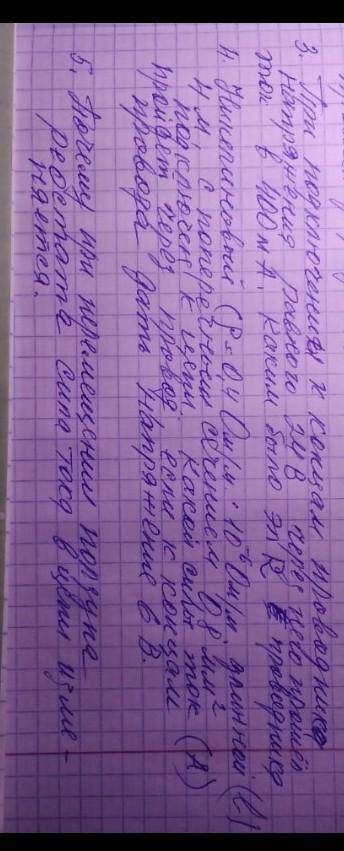 3. При подключении к концам проводника
напряжения равного 24 В через него прошёл
ток в 400 мА. Каким было эл R проводника
4. Никелиновый (Р = 0,4 Ом/м · 10⁻⁶ Ом/м. длинной (l)
4 м с поперечным сечением 0,8 мм²
подключен к цепи. Какой силы ток (А)
пройдет через провод если к концам
провода дать напряжение 6 В.
5. Почему при перемещении ползуна
реостата сила тока в цепи изме-
няется.